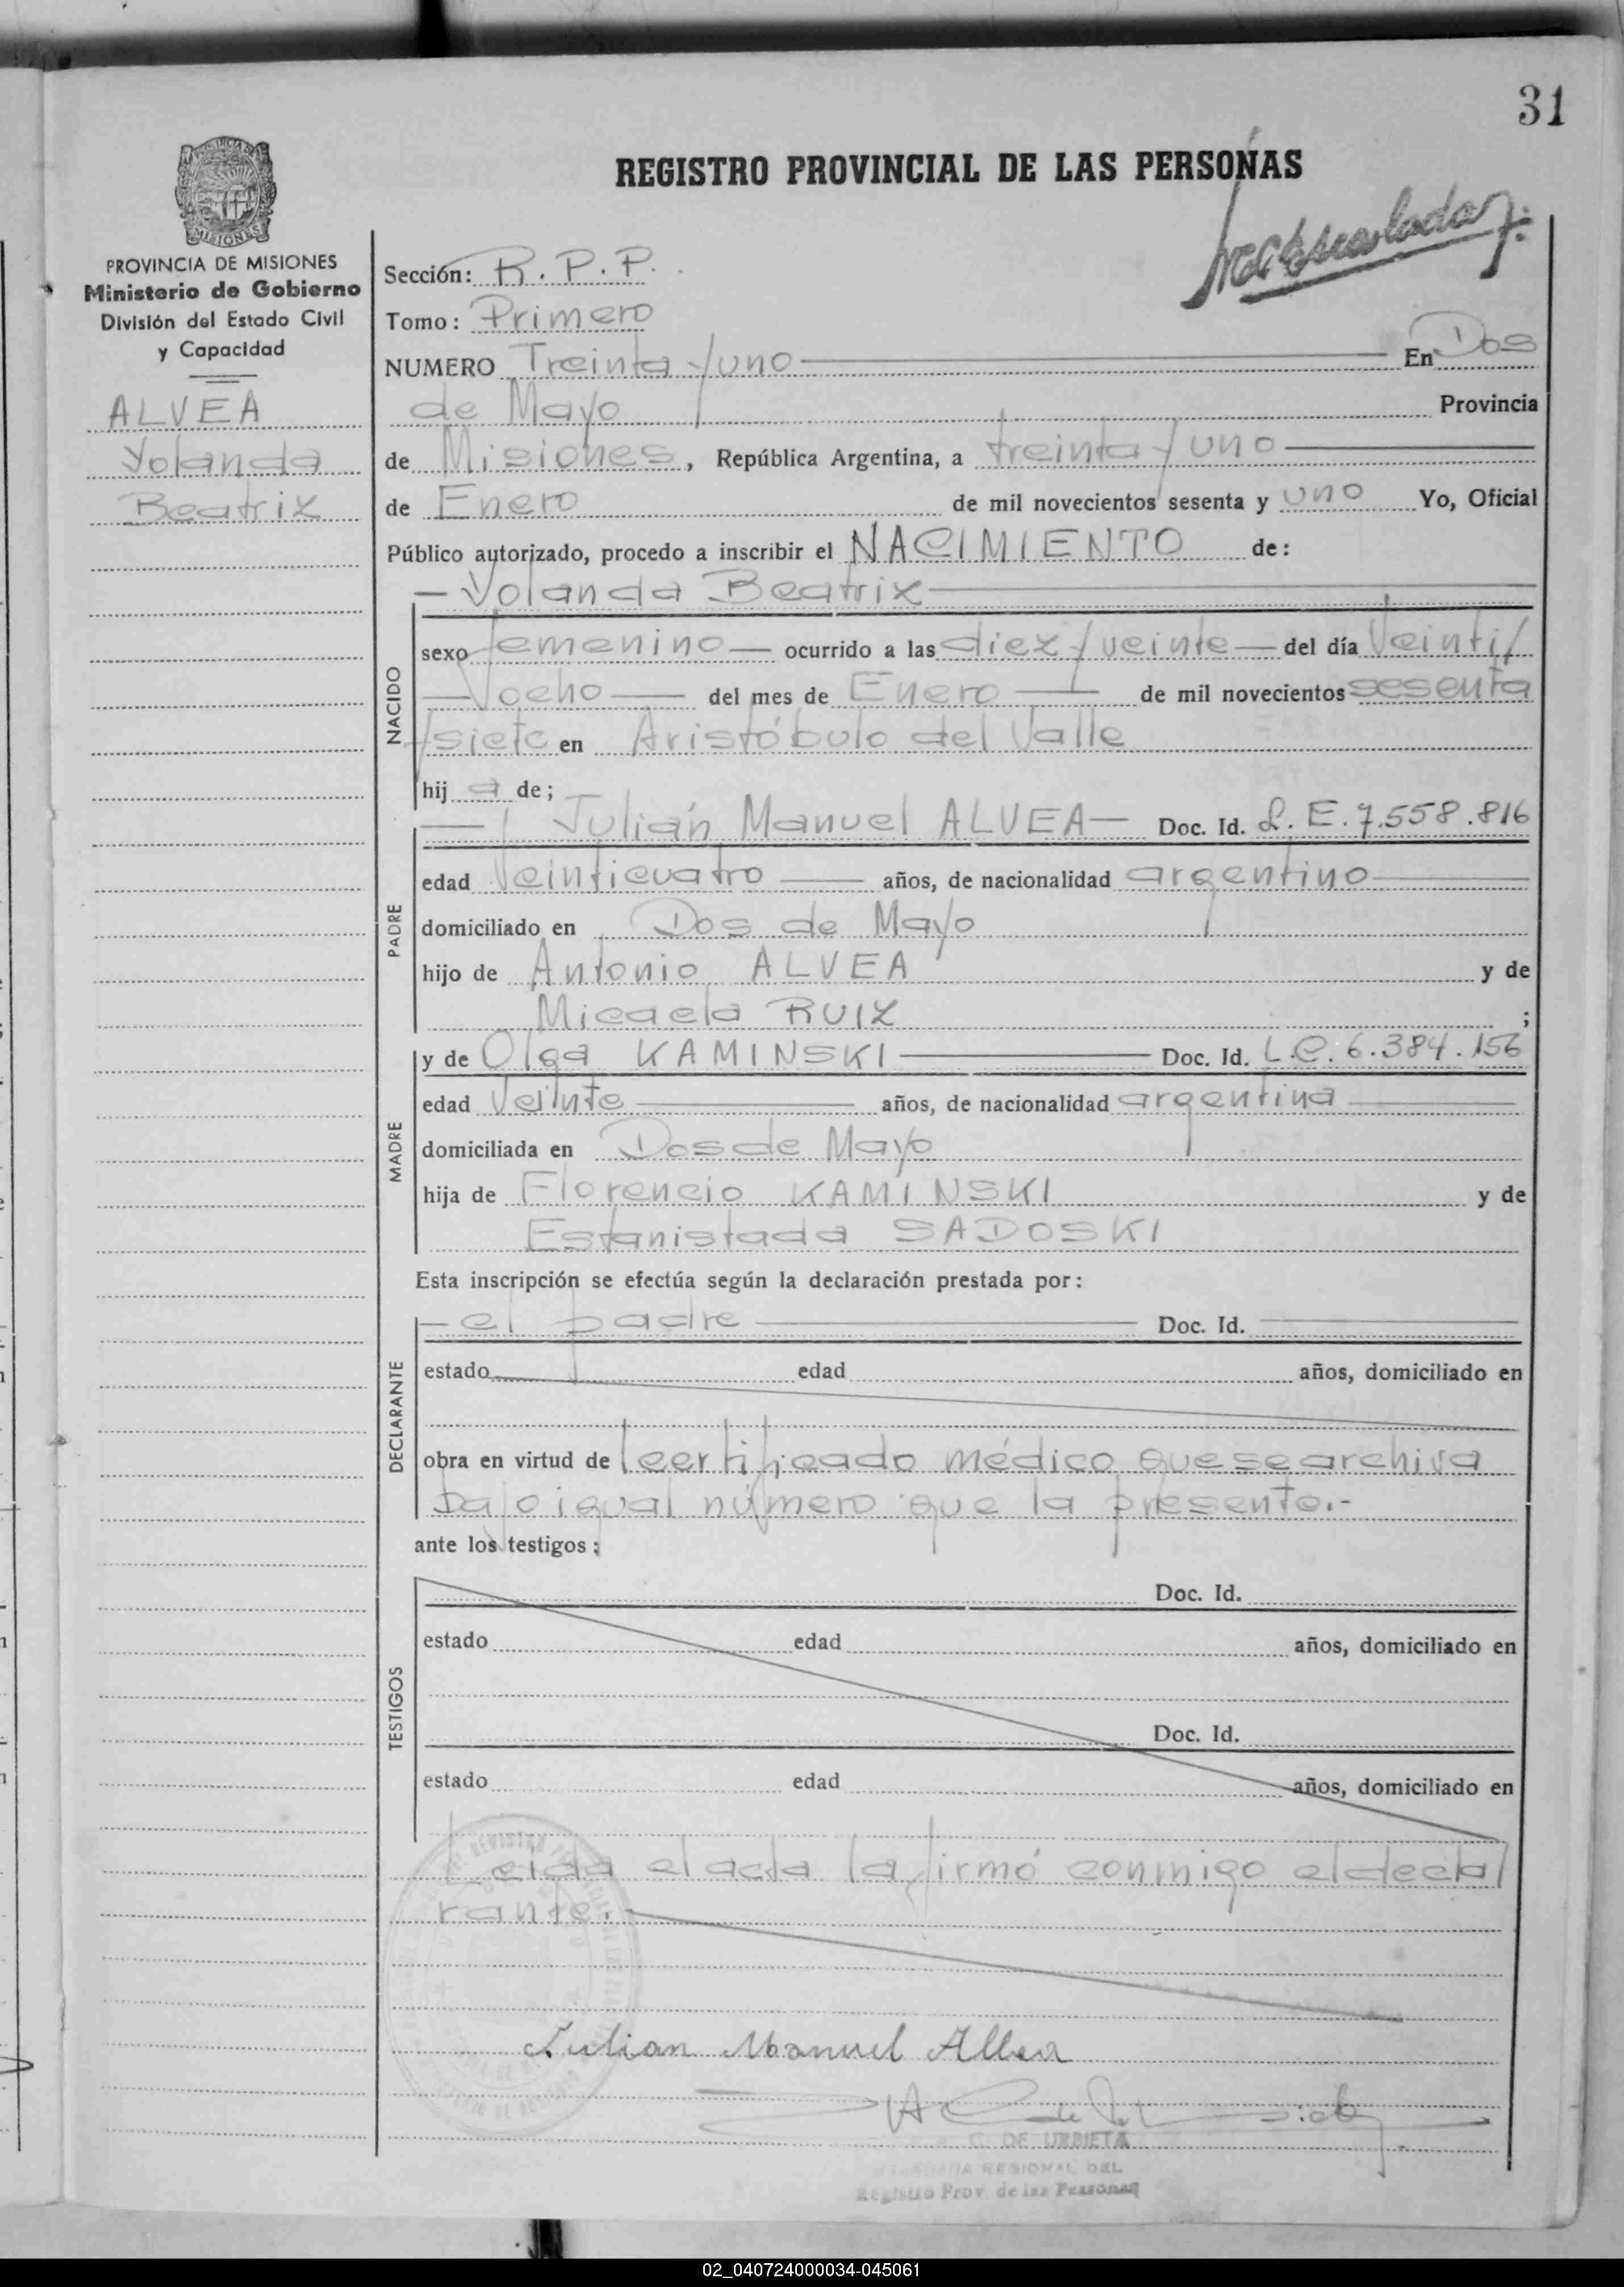 31
REGISTRO PROVINCIAL DE LAS PERSONAS
PROVINCIA DE MISIONES
Ministerio de Gobierno
División del Estado Civil
y Capacidad
ALVEA
Yolanda
Beatriz
Sección: R.P.P.
Tomo: Primero
NUMERO Treinta y uno En Dos
de Mayo Provincia
de Misiones, República Argentina, a treinta y uno
de Enero de mil novecientos sesenta y uno Yo, Oficial
Público autorizado, procedo a inscribir el NACIMIENTO de:
Yolanda Beatriz
NACIDO
sexo femenino ocurrido a las diez y veinte del día Veinti
ocho del mes de Enero de mil novecientos sesenta
y siete en Aristóbulo del Valle
hij a de;
PADRE
Julián Manuel ALVEA Doc. Id. L.E. 7.558.816
edad Veinticuatro años, de nacionalidad argentino
domiciliado en Dos de Mayo
hijo de Antonio ALVEA y de
Micaela RUIZ ;
MADRE
y de Olga KAMINSKI Doc. Id. L.C. 6.384.156
edad Veinte años, de nacionalidad argentina
domiciliada en Dos de Mayo
hija de Florencio KAMINSKI y de
Estanistada SADOSKI
Esta inscripción se efectúa según la declaración prestada por:
DECLARANTE
el padre Doc. Id.
estado edad años, domiciliado en
obra en virtud de certificado médico que se archiva
bajo igual número que la presente.-
ante los testigos;
TESTIGOS
Doc. Id.
estado edad años, domiciliado en
Doc. Id.
estado edad años, domiciliado en
Leida el acta la firmó conmigo el decla
rante.
Julian Manuel Albea
C. DE URBIETA
REGIONAL DEL
Registro Prov. de las Personas
02_040724000034-045061